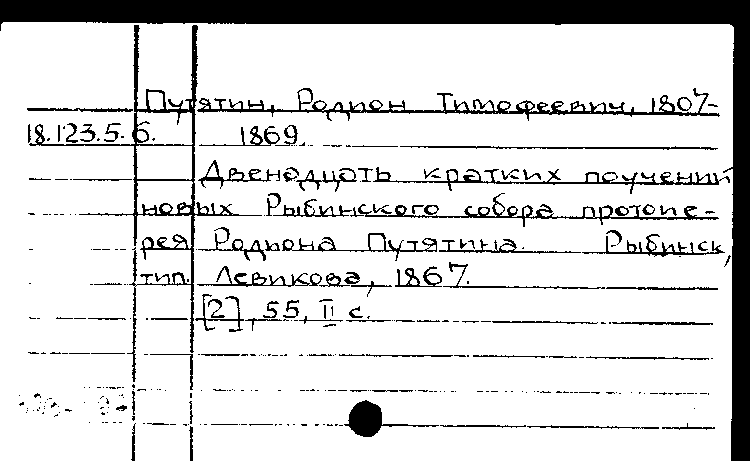 Путятин, Родион Тимофеевич, 1807-
18.123.5.6. 1869.
Двенадцать кратких поучений
новых Рыбинского собора протоие-
рея Родиона Путятина. Рыбинск,
тип. Левикова, 1867.
[2], 55, II с.